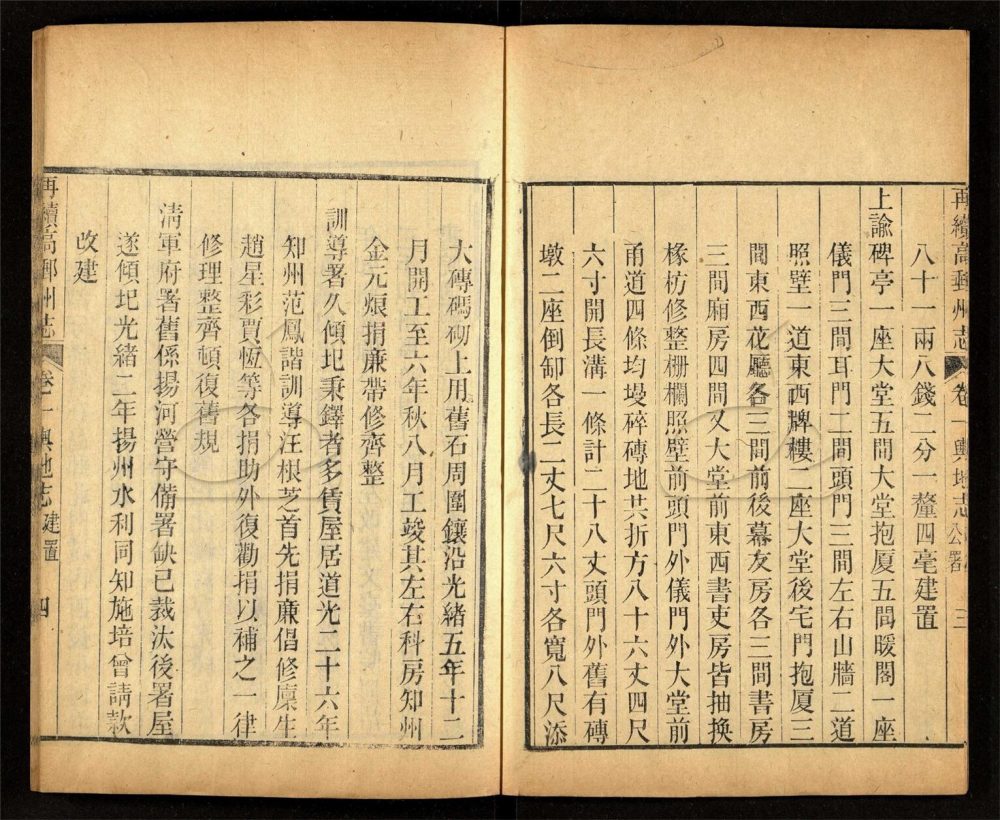 再續高郵州志 卷一 輿地志 公署 三
八十一兩八錢二分一釐四毫建置
上諭碑亭一座大堂五間大堂抱厦五間暖閣一座
儀門三間耳門二間頭門三間左右山牆二道
照壁一道東西牌樓二座大堂後宅門抱厦三
間東西花廳各三間前後幕友房各三間書房
三間廂房四間又大堂前東西書吏房皆抽換
椽枋修整柵欄照壁前頭門外儀門外大堂前
甬道四條均墁碎磚地共折方八十六丈四尺
六寸開長溝一條計二十八丈頭門外舊有磚
墩二座倒卸各長二丈七尺六寸各寬八尺添
大磚碼砌上用舊石周圍鑲沿光緒五年十二
月開工至六年秋八月工竣其左右科房知州
金元烺捐廉帶修齊整
訓導署久傾圮秉鐸者多賃屋居道光二十六年
知州范鳳諧訓導汪根芝首先捐廉倡修廩生
趙星彩賈恆等各捐助外復勸捐以補之一律
修理整齊頓復舊規
淸軍府署舊係揚河營守備署缺已裁汰後署屋
遂傾圮光緒二年揚州水利同知施培曾請款
改建
再續高郵州志 卷一 輿地志 建置 四